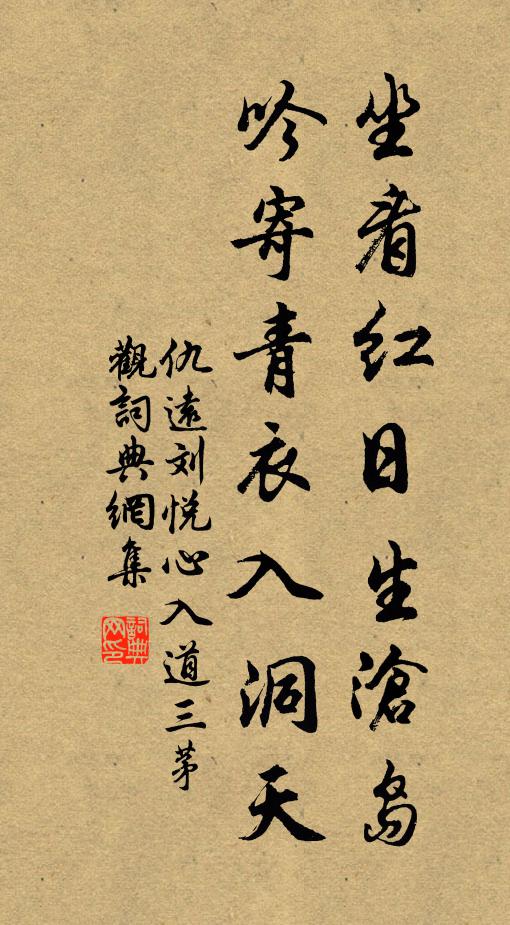 坐看红日生滄島
吟寄青衣入洞天
仇遠刘悦心入道三茅
觀詞典網集
詞典网印